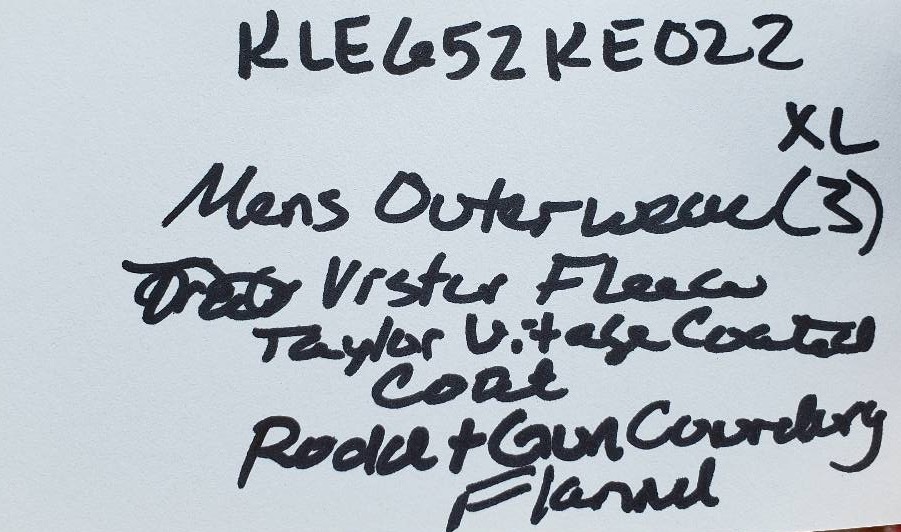 KLE652KE022
XL
Mens Outerwear (3)
Vrster Fleece
Taylor Vitage Coated
Coat
Rodd + Gun
Flannel